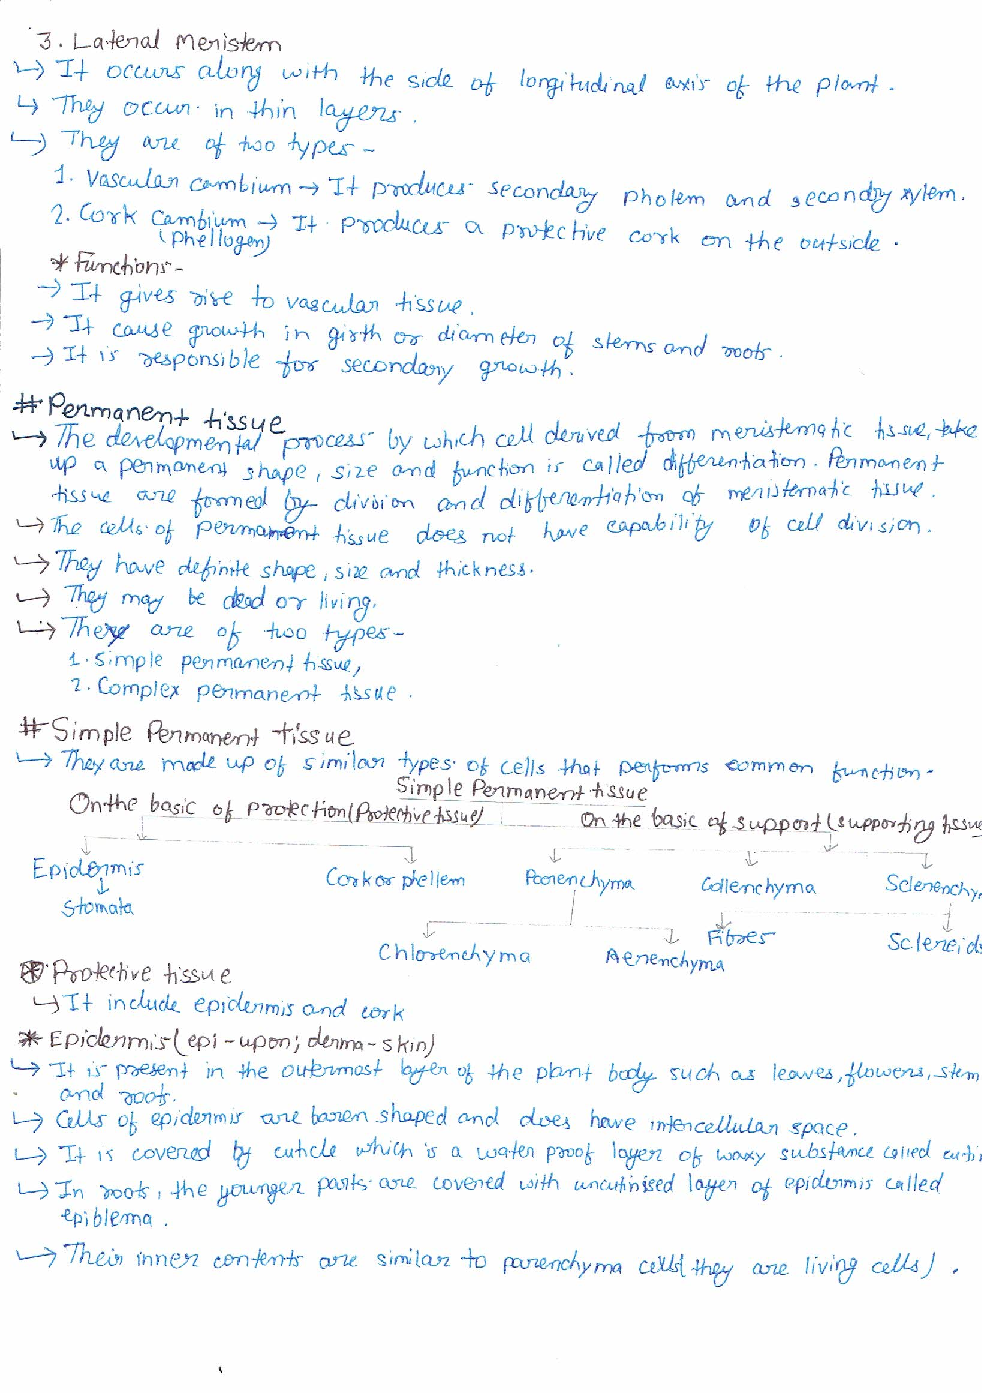 3. Lateral Meristem
↳ It occurs along with the side of longitudinal axis of the plant.
↳ They occur in thin layers.
↳ They are of two types -
1. Vascular cambium → It produces secondary pholem and secondry xylem.
2. Cork Cambium → It produces a protective cork on the outside.
(Phellogen)
* Functions -
→ It gives rise to vascular tissue.
→ It cause growth in girth or diameter of stems and roots.
→ It is responsible for secondary growth.
# Permanent tissue
↳ The developmental process by which cell derived from meristematic tissue, take
up a permanent shape, size and function is called differentiation. Permanent
tissue are formed by division and differentiation of meristematic tissue.
↳ The cells of permanent tissue does not have capability of cell division.
↳ They have definite shape, size and thickness.
↳ They may be dead or living.
↳ There are of two types -
1. Simple permanent tissue,
2. Complex permanent tissue.
# Simple Permanent tissue
↳ They are made up of similar types of cells that performs common function.
Simple Permanent tissue
On the basic of protection (Protective tissue) On the basic of support (supporting tissue
Epidermis Cork or phellem Parenchyma Collenchyma Sclerenchy
Stomata Fibres Sclereids
Chlorenchyma Aerenchyma
⊛ Protective tissue
↳ It include epidermis and cork
* Epidermis (epi - upon; derma - skin)
↳ It is present in the outermost layer of the plant body such as leaves, flowers, stem
and roots.
↳ Cells of epidermis are barren shaped and does have intercellular space.
↳ It is covered by cuticle which is a water proof layer of waxy substance called cuti
↳ In roots, the younger parts are covered with uncutinised layer of epidermis called
epiblema.
↳ Their inner contents are similar to parenchyma cells (they are living cells).